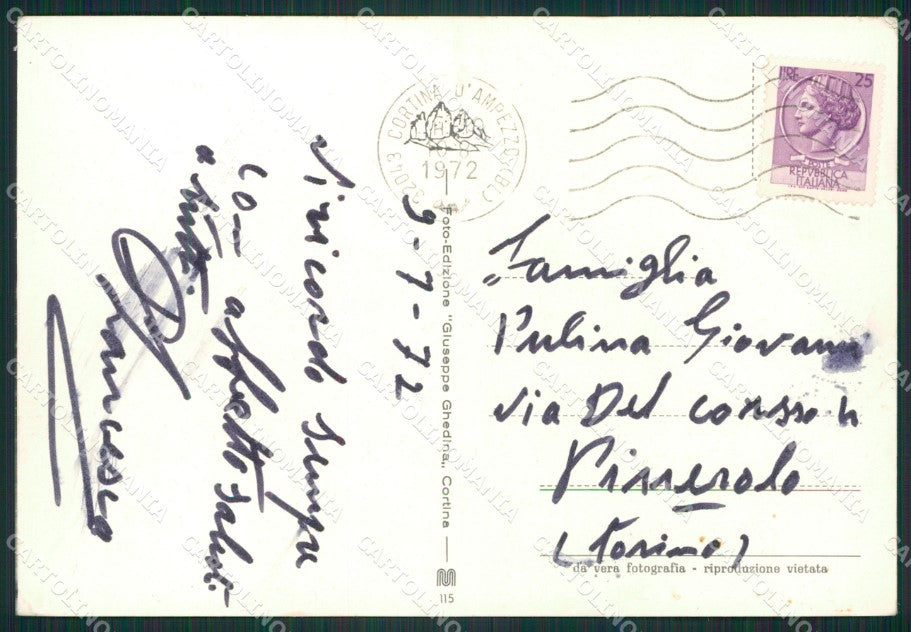 9-7-72
Vi ricordo sempre
con affetto saluti
a tutti
Francesco
32043 CORTINA D'AMPEZZO (BL)
1972
LIRE 25
POSTE
REPVBBLICA
ITALIANA
Famiglia
Pulina Giovanni
Via Del corsso
Pinerolo
(Torino)
Foto-Edizione "Giuseppe Ghedina" Cortina
115
da vera fotografia - riproduzione vietata
CARTOLINOMANIA